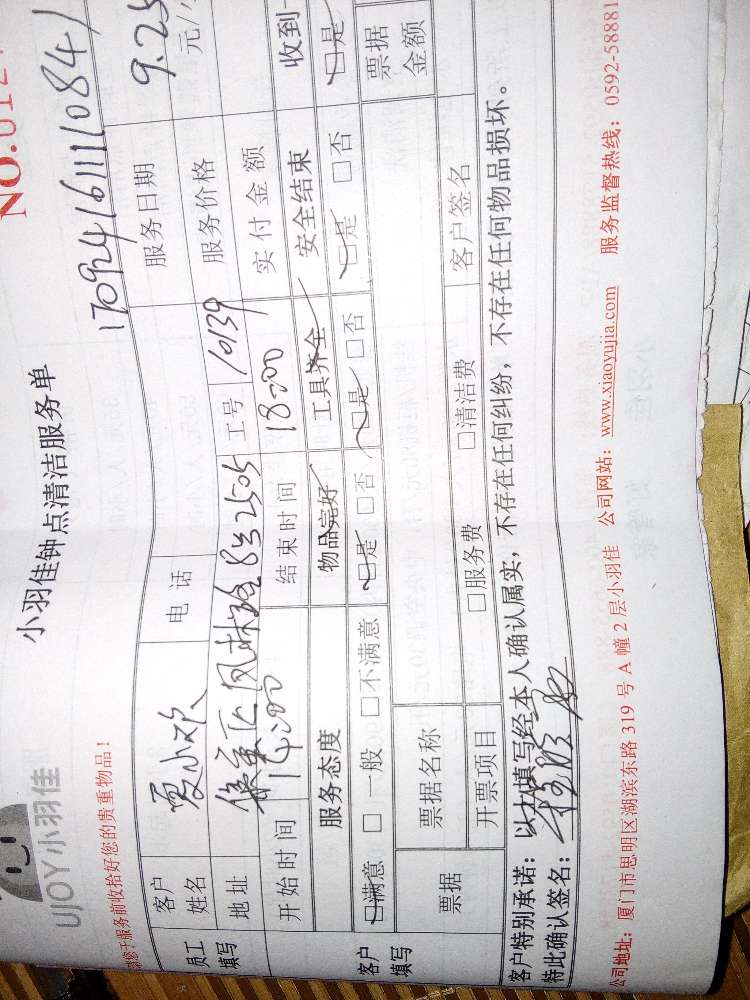 UJOY小羽佳
小羽佳钟点清洁服务单
NO.012
请您于服务前收拾好您的贵重物品！
170924161111084
员工填写
客户姓名 夏小欢 电话 服务日期 9.25
地址 2505 工号 10139 服务价格 元/
开始时间 14:00 结束时间 18:00 实付金额
客户填写
服务态度 物品完好 工具齐全 安全结束 收到
☑满意 □一般 □不满意 ☑是 □否 ☑是 □否 ☑是 □否 ☑是
票据 票据名称 票据金额
开票项目 □服务费 □清洁费 客户签名
客户特别承诺：以上填写经本人确认属实，不存在任何纠纷，不存在任何物品损坏。
特此确认签名：
公司地址：厦门市思明区湖滨东路 319 号 A 幢 2 层小羽佳 公司网站：www.xiaoyujia.com 服务监督热线：0592-58881